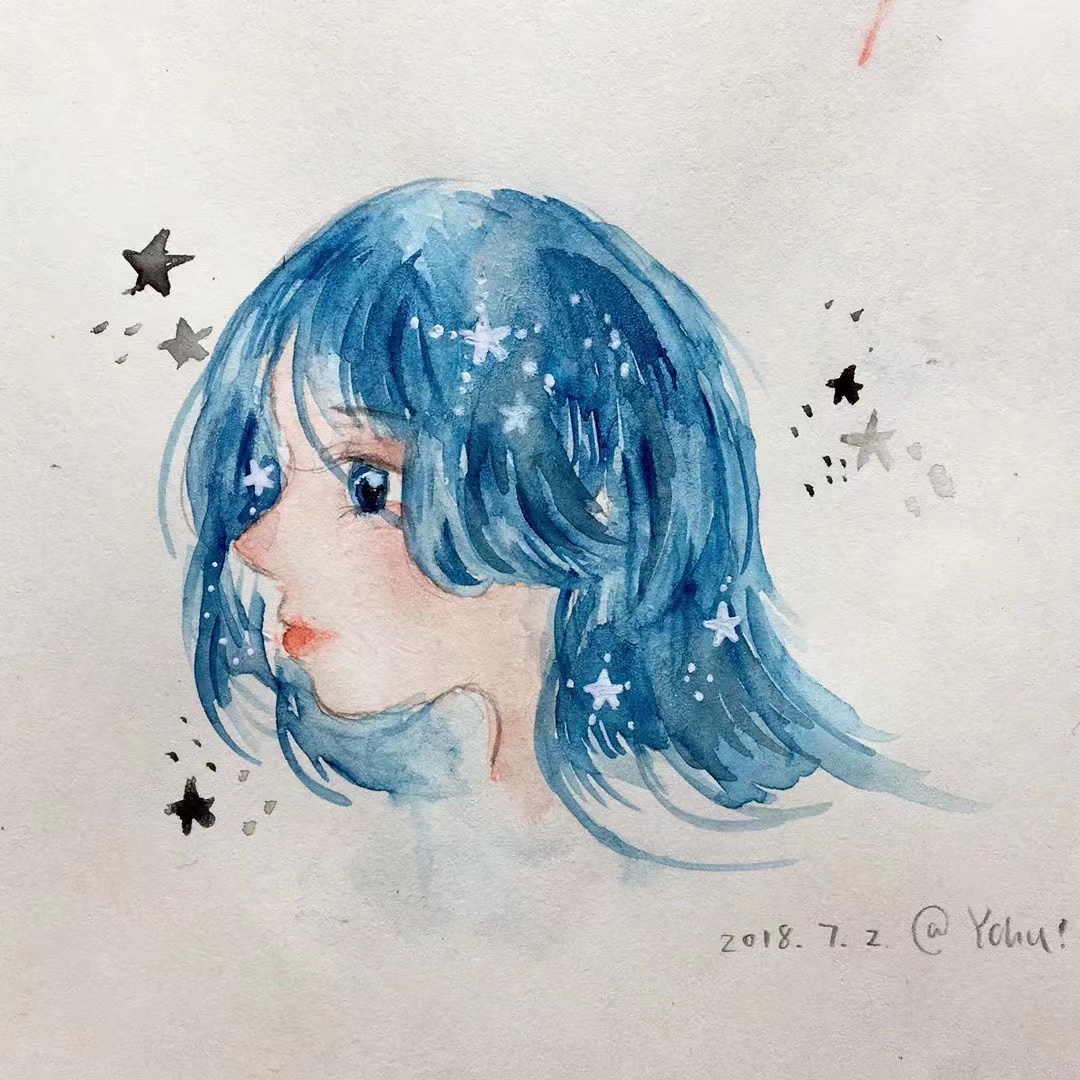 2018.7.2 @Yohu!